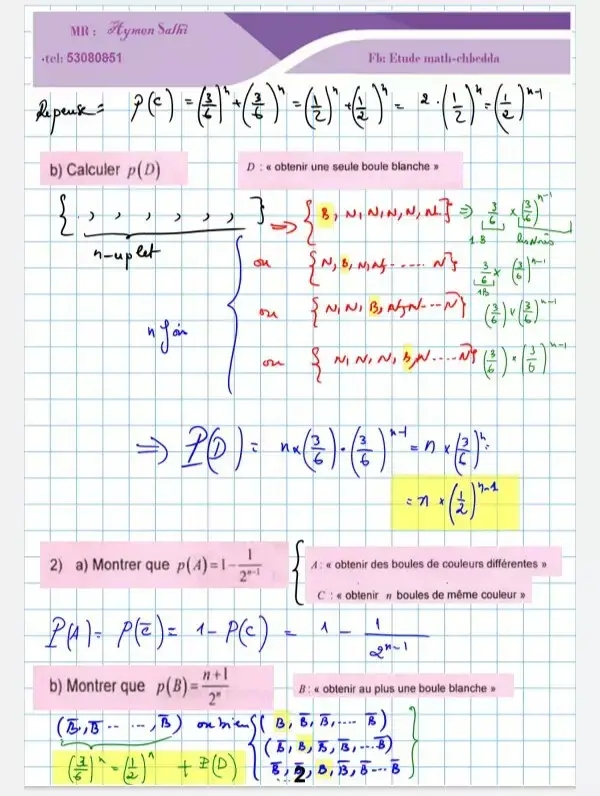 MR : Aymen Salhi
•tel: 53080851
Fb: Etude math-chbedda
Reponse = P(C) = (3/6)^n + (3/6)^n = (1/2)^n + (1/2)^n = 2 · (1/2)^n = (1/2)^{n-1}
b) Calculer p(D)
D : « obtenir une seule boule blanche »
{ ·, , , , , , } ⇒ { B, N, N, N, N, N } ⇒ 3/6 × (3/6)^{n-1}
n-uplet
1B
ou { N, B, N, N, - - - - N } 3/6 × (3/6)^{n-1}
1B
ou { N, N, B, N, N - - - N } (3/6) × (3/6)^{n-1}
n fois
ou { N, N, N, B, N ..... N } (3/6) × (3/6)^{n-1}
⇒ P(D) = n × (3/6) · (3/6)^{n-1} = n × (3/6)^n =
= n × (1/2)^{n-1}
2) a) Montrer que p(A) = 1 - 1/2^{n-1}
A : « obtenir des boules de couleurs différentes »
C : « obtenir n boules de même couleur »
P(A) = P(C̅) = 1 - P(C) = 1 - 1/2^{n-1}
b) Montrer que p(B) = (n+1)/2^n
B : « obtenir au plus une boule blanche »
(B̅, B̅ - - - -, B̅) ou bien { ( B, B̅, B̅, .... B̅ )
( B̅, B, B̅, B̅, ... B̅ )
(3/6)^n = (1/2)^n + P(D)
B̅, B̅, B, B̅, B̅ - - B̅
2